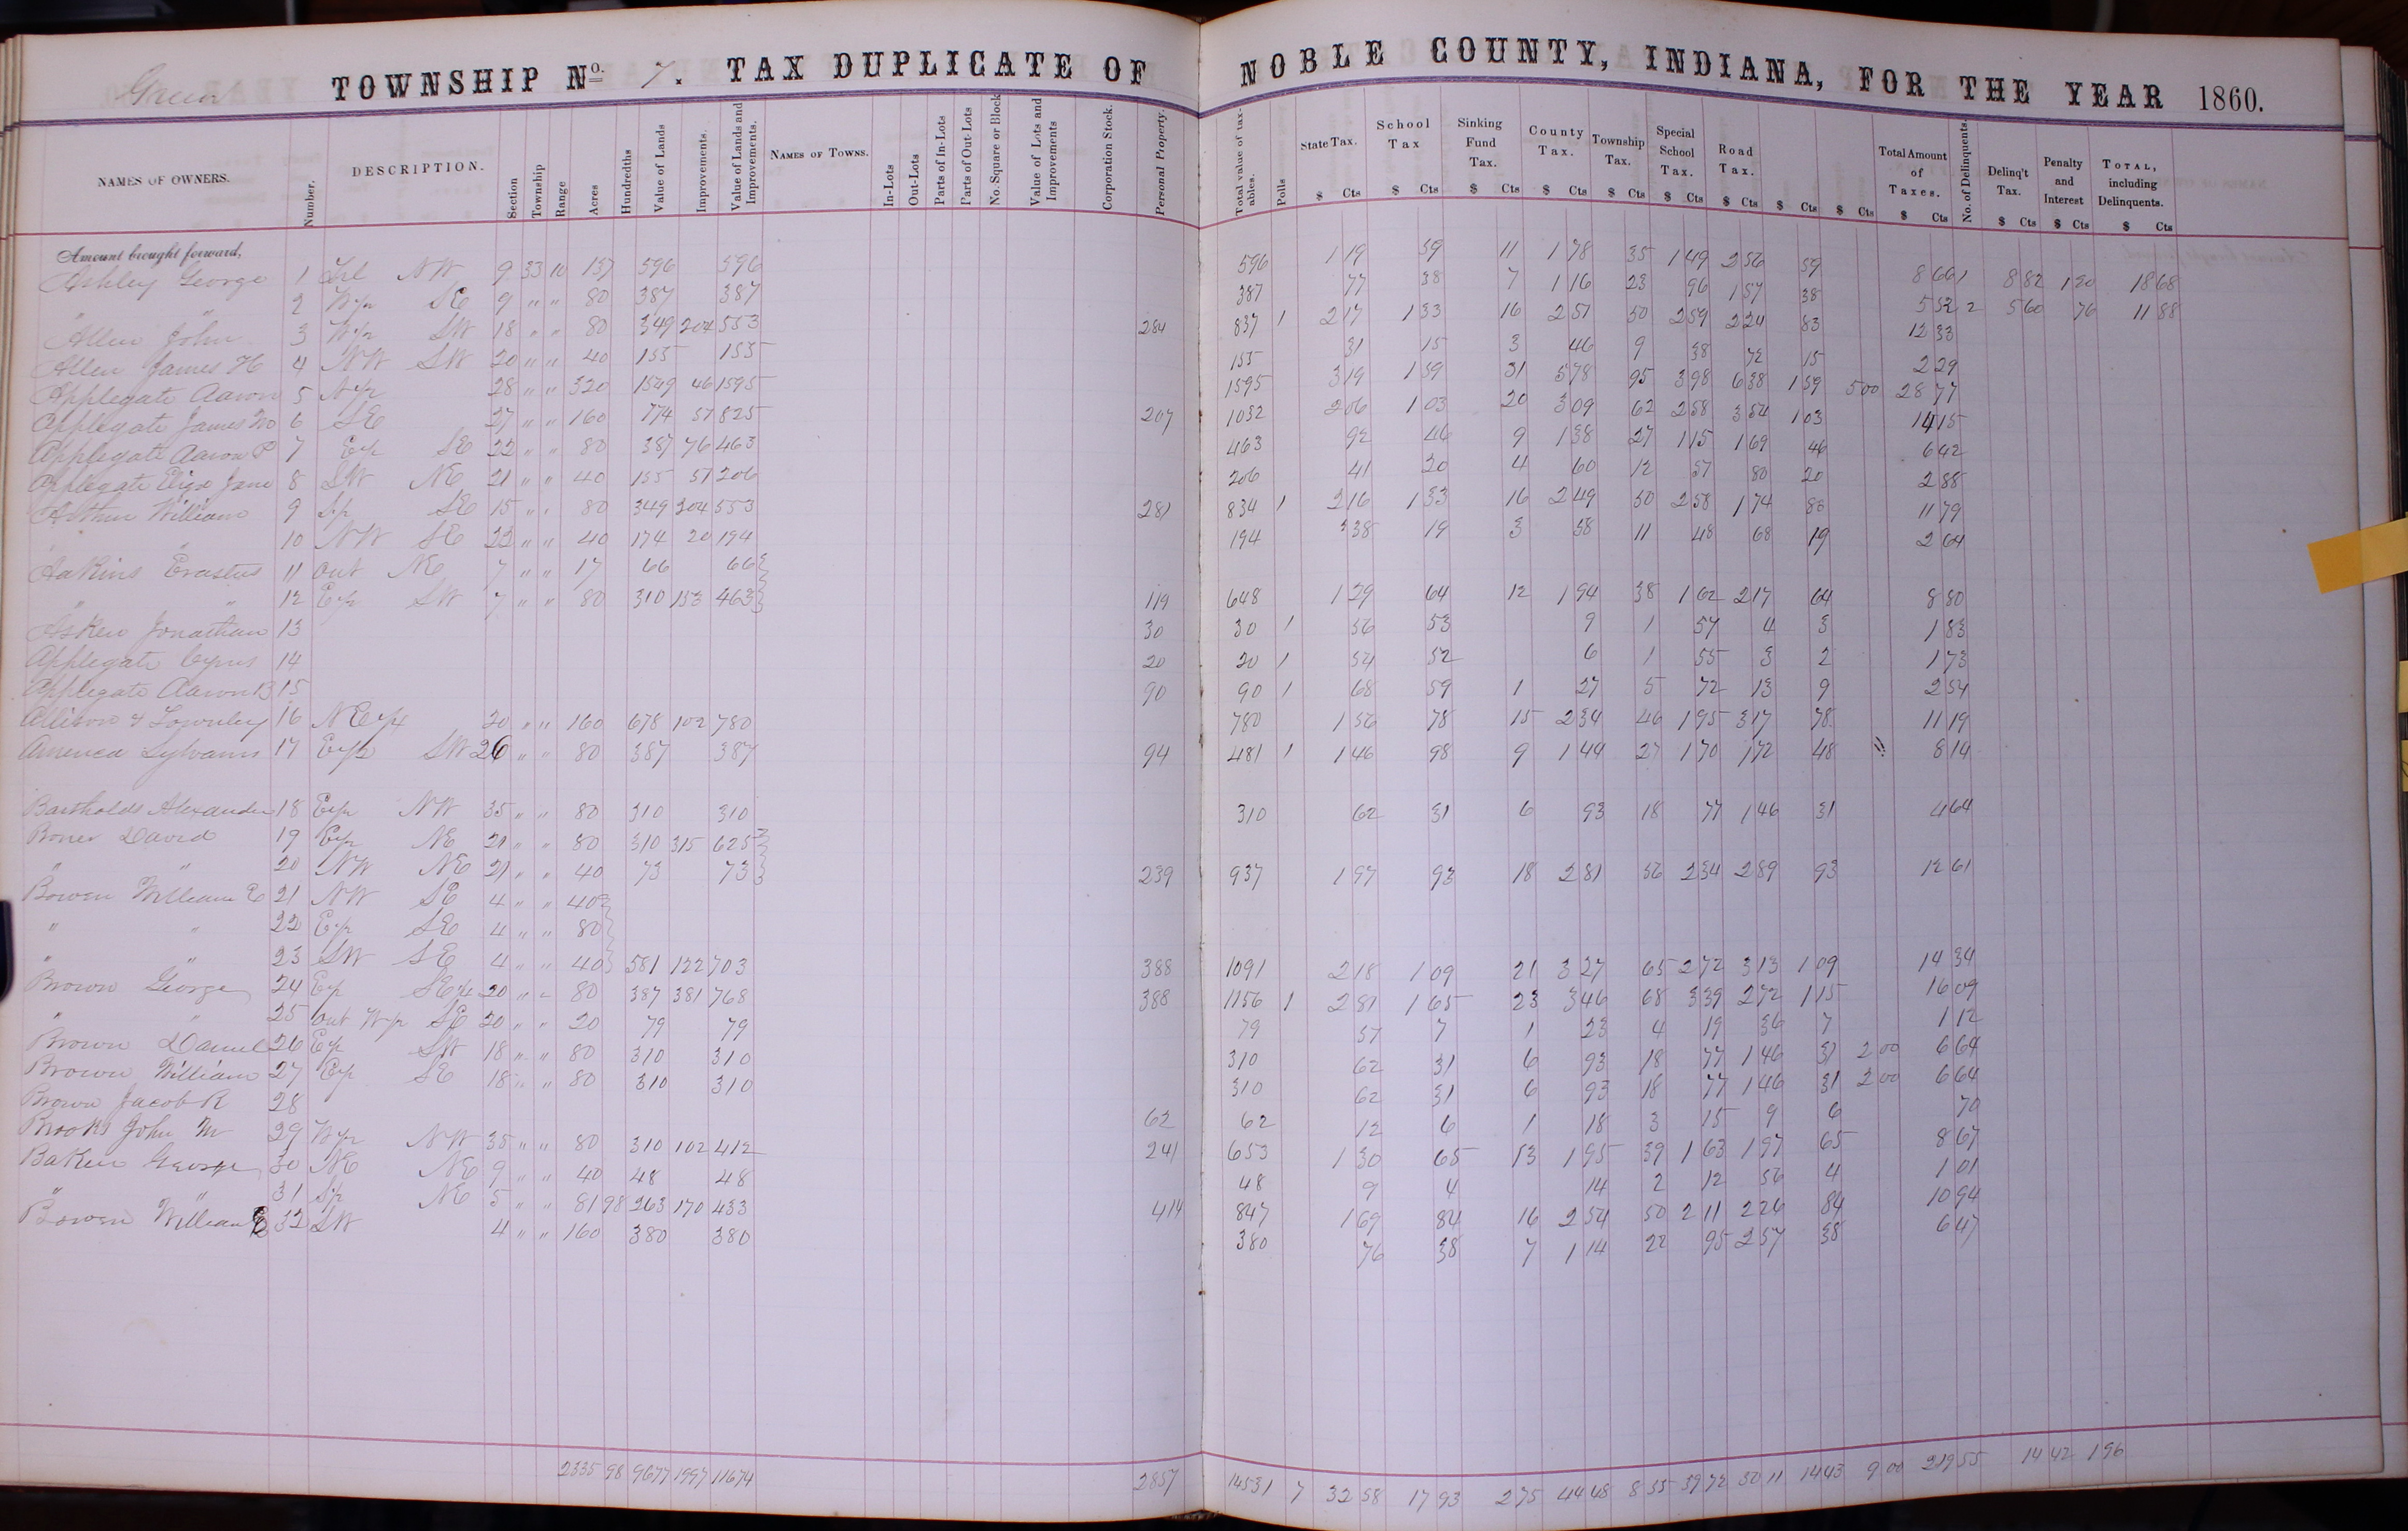 Green TOWNSHIP No. 7. TAX DUPLICATE OF NOBLE COUNTY, INDIANA, FOR THE YEAR 1860.
NAMES OF OWNERS. Number. DESCRIPTION. Section Township Range Acres Hundredths Value of Lands Improvements. Value of Lands and Improvements. NAMES OF TOWNS. In-Lots Out-Lots Parts of In-Lots Parts of Out-Lots No. Square or Block Value of Lots and Improvements Corporation Stock. Personal Property Total value of taxables. Polls State Tax. School Tax Sinking Fund Tax. County Tax. Township Tax. Special School Tax. Road Tax. Total Amount of Taxes. No. of Delinquents. Delinq't Tax. Penalty and Interest TOTAL, including Delinquents.
$ Cts $ Cts $ Cts $ Cts $ Cts $ Cts $ Cts $ Cts $ Cts $ Cts $ Cts $ Cts
Amount brought forward,
Ashley George 1 NW 9 33 10 157 596 596 596 1 19 59 11 1 78 35 1 49 2 56 59 8 66 1 8 82 1 20 18 68
" " 2 W½ SE 9 " " 80 387 387 387 77 38 7 1 16 23 96 1 57 38 5 52 2 5 60 76 11 88
Allen John 3 W½ SW 18 " " 80 349 204 553 284 837 1 2 17 1 33 16 2 51 50 2 59 2 24 83 12 33
Allen James H 4 NW SW 20 " " 40 155 155 155 31 15 3 46 9 38 72 15 2 29
Applegate Aaron 5 N½ 28 " " 320 1549 46 1595 1595 3 19 1 59 31 5 78 95 3 98 6 38 1 59 5 00 28 77
Applegate James 6 SE 27 " " 160 774 51 825 207 1032 2 06 1 03 20 3 09 62 2 58 3 54 1 03 14 15
Applegate Aaron P 7 E½ SE 22 " " 80 387 76 463 463 92 46 9 1 38 27 1 15 1 69 46 6 42
Applegate Eliza Jane 8 SW NE 21 " " 40 155 51 206 206 41 20 4 60 12 51 80 20 2 88
Arthur William 9 S½ SE 15 " " 80 349 204 553 281 834 1 2 16 1 33 16 2 49 50 2 58 1 74 83 11 79
" 10 NW SE 22 " " 40 174 20 194 194 38 19 3 58 11 48 68 19 2 64
Askins Erastus 11 out NE 7 " " 17 66 66
" " 12 E½ SW 7 " " 80 310 153 463 119 648 1 29 64 12 1 94 38 1 62 2 17 64 8 80
Asken Jonathan 13 30 30 1 56 53 9 1 57 4 3 1 83
Applegate Cyrus 14 20 20 1 54 52 6 1 55 3 2 1 73
Applegate Aaron B 15 90 90 1 68 59 1 27 5 72 13 9 2 54
Allison & Townley 16 NE¼ 20 " " 160 678 102 780 780 1 56 78 15 2 34 46 1 95 3 17 78 11 19
America Sylvanus 17 E½ SW 26 " " 80 387 387 94 481 1 1 46 98 9 1 44 27 1 70 1 72 48 8 14
Bartholds Alexander 18 E½ NW 35 " " 80 310 310 310 62 31 6 93 18 77 1 46 31 4 64
Boner David 19 E½ NE 21 " " 80 310 315 625
" " 20 NW NE 21 " " 40 73 73 239 937 1 97 93 18 2 81 56 2 34 2 89 93 12 61
Bowen William E 21 NW SE 4 " " 40
" " 22 E½ SE 4 " " 80
" " 23 SW SE 4 " " 40 581 122 703 388 1091 2 18 1 09 21 3 27 65 2 72 3 13 1 09 14 34
Brown George 24 E½ SE¼ 20 " " 80 387 381 768 388 1156 1 2 81 1 65 23 3 46 68 3 39 2 72 1 15 16 09
" " 25 out W½ SE 20 " " 20 79 79 79 57 7 1 23 4 19 36 7 1 12
Brown Daniel 26 E½ SW 18 " " 80 310 310 310 62 31 6 93 18 77 1 46 31 2 00 6 64
Brown William 27 E½ SE 18 " " 80 310 310 310 62 31 6 93 18 77 1 46 31 2 00 6 64
Brown Jacob K 28 62 62 12 6 1 18 3 15 9 6 70
Brooks John M 29 W½ NW 35 " " 80 310 102 412 241 653 1 30 65 13 1 95 39 1 63 1 97 65 8 67
Baker George 30 NE NE 9 " " 40 48 48 48 9 4 14 2 12 56 4 1 01
" " 31 S½ NE 5 " " 81 98 263 170 433 414 847 1 69 84 16 2 54 50 2 11 2 26 84 10 94
Bowen William E 32 SW 4 " " 160 380 380 380 76 38 7 1 14 22 95 2 57 38 6 47
2335 98 9677 1997 11674 2857 14531 7 32 58 17 93 2 75 44 48 8 55 39 72 50 11 14 43 9 00 219 55 14 42 1 96